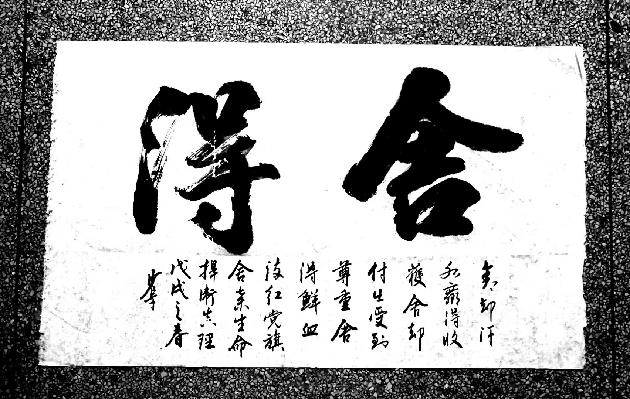 舍得
舍却汗
水赢得收
獲舍却
付出受到
尊重舍
得鮮血
染红党旗
舍弃生命
捍衛真理
戊戌之春